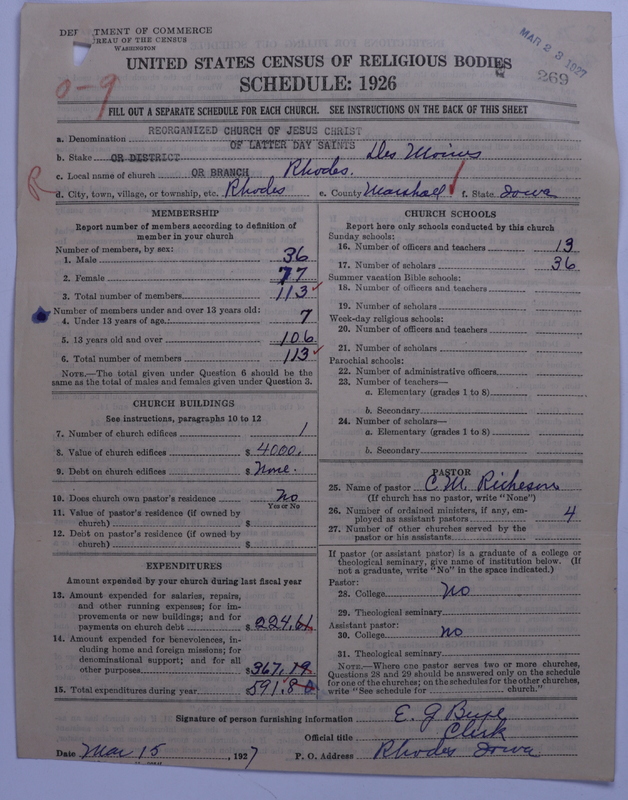 DEPARTMENT OF COMMERCE
BUREAU OF THE CENSUS
WASHINGTON
MAR 23 1927
UNITED STATES CENSUS OF RELIGIOUS BODIES
269
SCHEDULE: 1926
0-9
FILL OUT A SEPARATE SCHEDULE FOR EACH CHURCH. SEE INSTRUCTIONS ON THE BACK OF THIS SHEET
a. Denomination REORGANIZED CHURCH OF JESUS CHRIST
OF LATTER DAY SAINTS
b. Stake OR DISTRICT Des Moines
c. Local name of church OR BRANCH Rhodes.
R
d. City, town, village, or township, etc. Rhodes e. County Marshall f. State Iowa
MEMBERSHIP
Report number of members according to definition of
member in your church
Number of members, by sex:
1. Male 36
2. Female 77
3. Total number of members 113
Number of members under and over 13 years old:
4. Under 13 years of age 7
5. 13 years old and over 106
6. Total number of members 113
NOTE.—The total given under Question 6 should be the
same as the total of males and females given under Question 3.
CHURCH BUILDINGS
See instructions, paragraphs 10 to 12
7. Number of church edifices 1
8. Value of church edifices $ 4000.
9. Debt on church edifices $ None.
10. Does church own pastor's residence No
Yes or No
11. Value of pastor's residence (if owned by
church) $
12. Debt on pastor's residence (if owned by
church) $
EXPENDITURES
Amount expended by your church during last fiscal year
13. Amount expended for salaries, repairs,
and other running expenses; for im-
provements or new buildings; and for
payments on church debt $ 224.61
14. Amount expended for benevolences, in-
cluding home and foreign missions; for
denominational support; and for all
other purposes $ 367.19
15. Total expenditures during year 591.80
CHURCH SCHOOLS
Report here only schools conducted by this church
Sunday schools:
16. Number of officers and teachers 13
17. Number of scholars 36
Summer vacation Bible schools:
18. Number of officers and teachers
19. Number of scholars
Week-day religious schools:
20. Number of officers and teachers
21. Number of scholars
Parochial schools:
22. Number of administrative officers
23. Number of teachers—
a. Elementary (grades 1 to 8)
b. Secondary
24. Number of scholars—
a. Elementary (grades 1 to 8)
b. Secondary
PASTOR
25. Name of pastor C. M. Richeson
(If church has no pastor, write "None")
26. Number of ordained ministers, if any, em-
ployed as assistant pastors 4
27. Number of other churches served by the
pastor or his assistants
If pastor (or assistant pastor) is a graduate of a college or
theological seminary, give name of institution below. (If
not a graduate, write "No" in the space indicated.)
Pastor:
28. College No
29. Theological seminary
Assistant pastor:
30. College No
31. Theological seminary
NOTE.—Where one pastor serves two or more churches,
Questions 28 and 29 should be answered only on the schedule
for one of the churches; on the schedules for the other churches,
write "See schedule for church."
Signature of person furnishing information E. G.
Official title Clerk
Date Mar 15, 1927 P. O. Address Rhodes Iowa